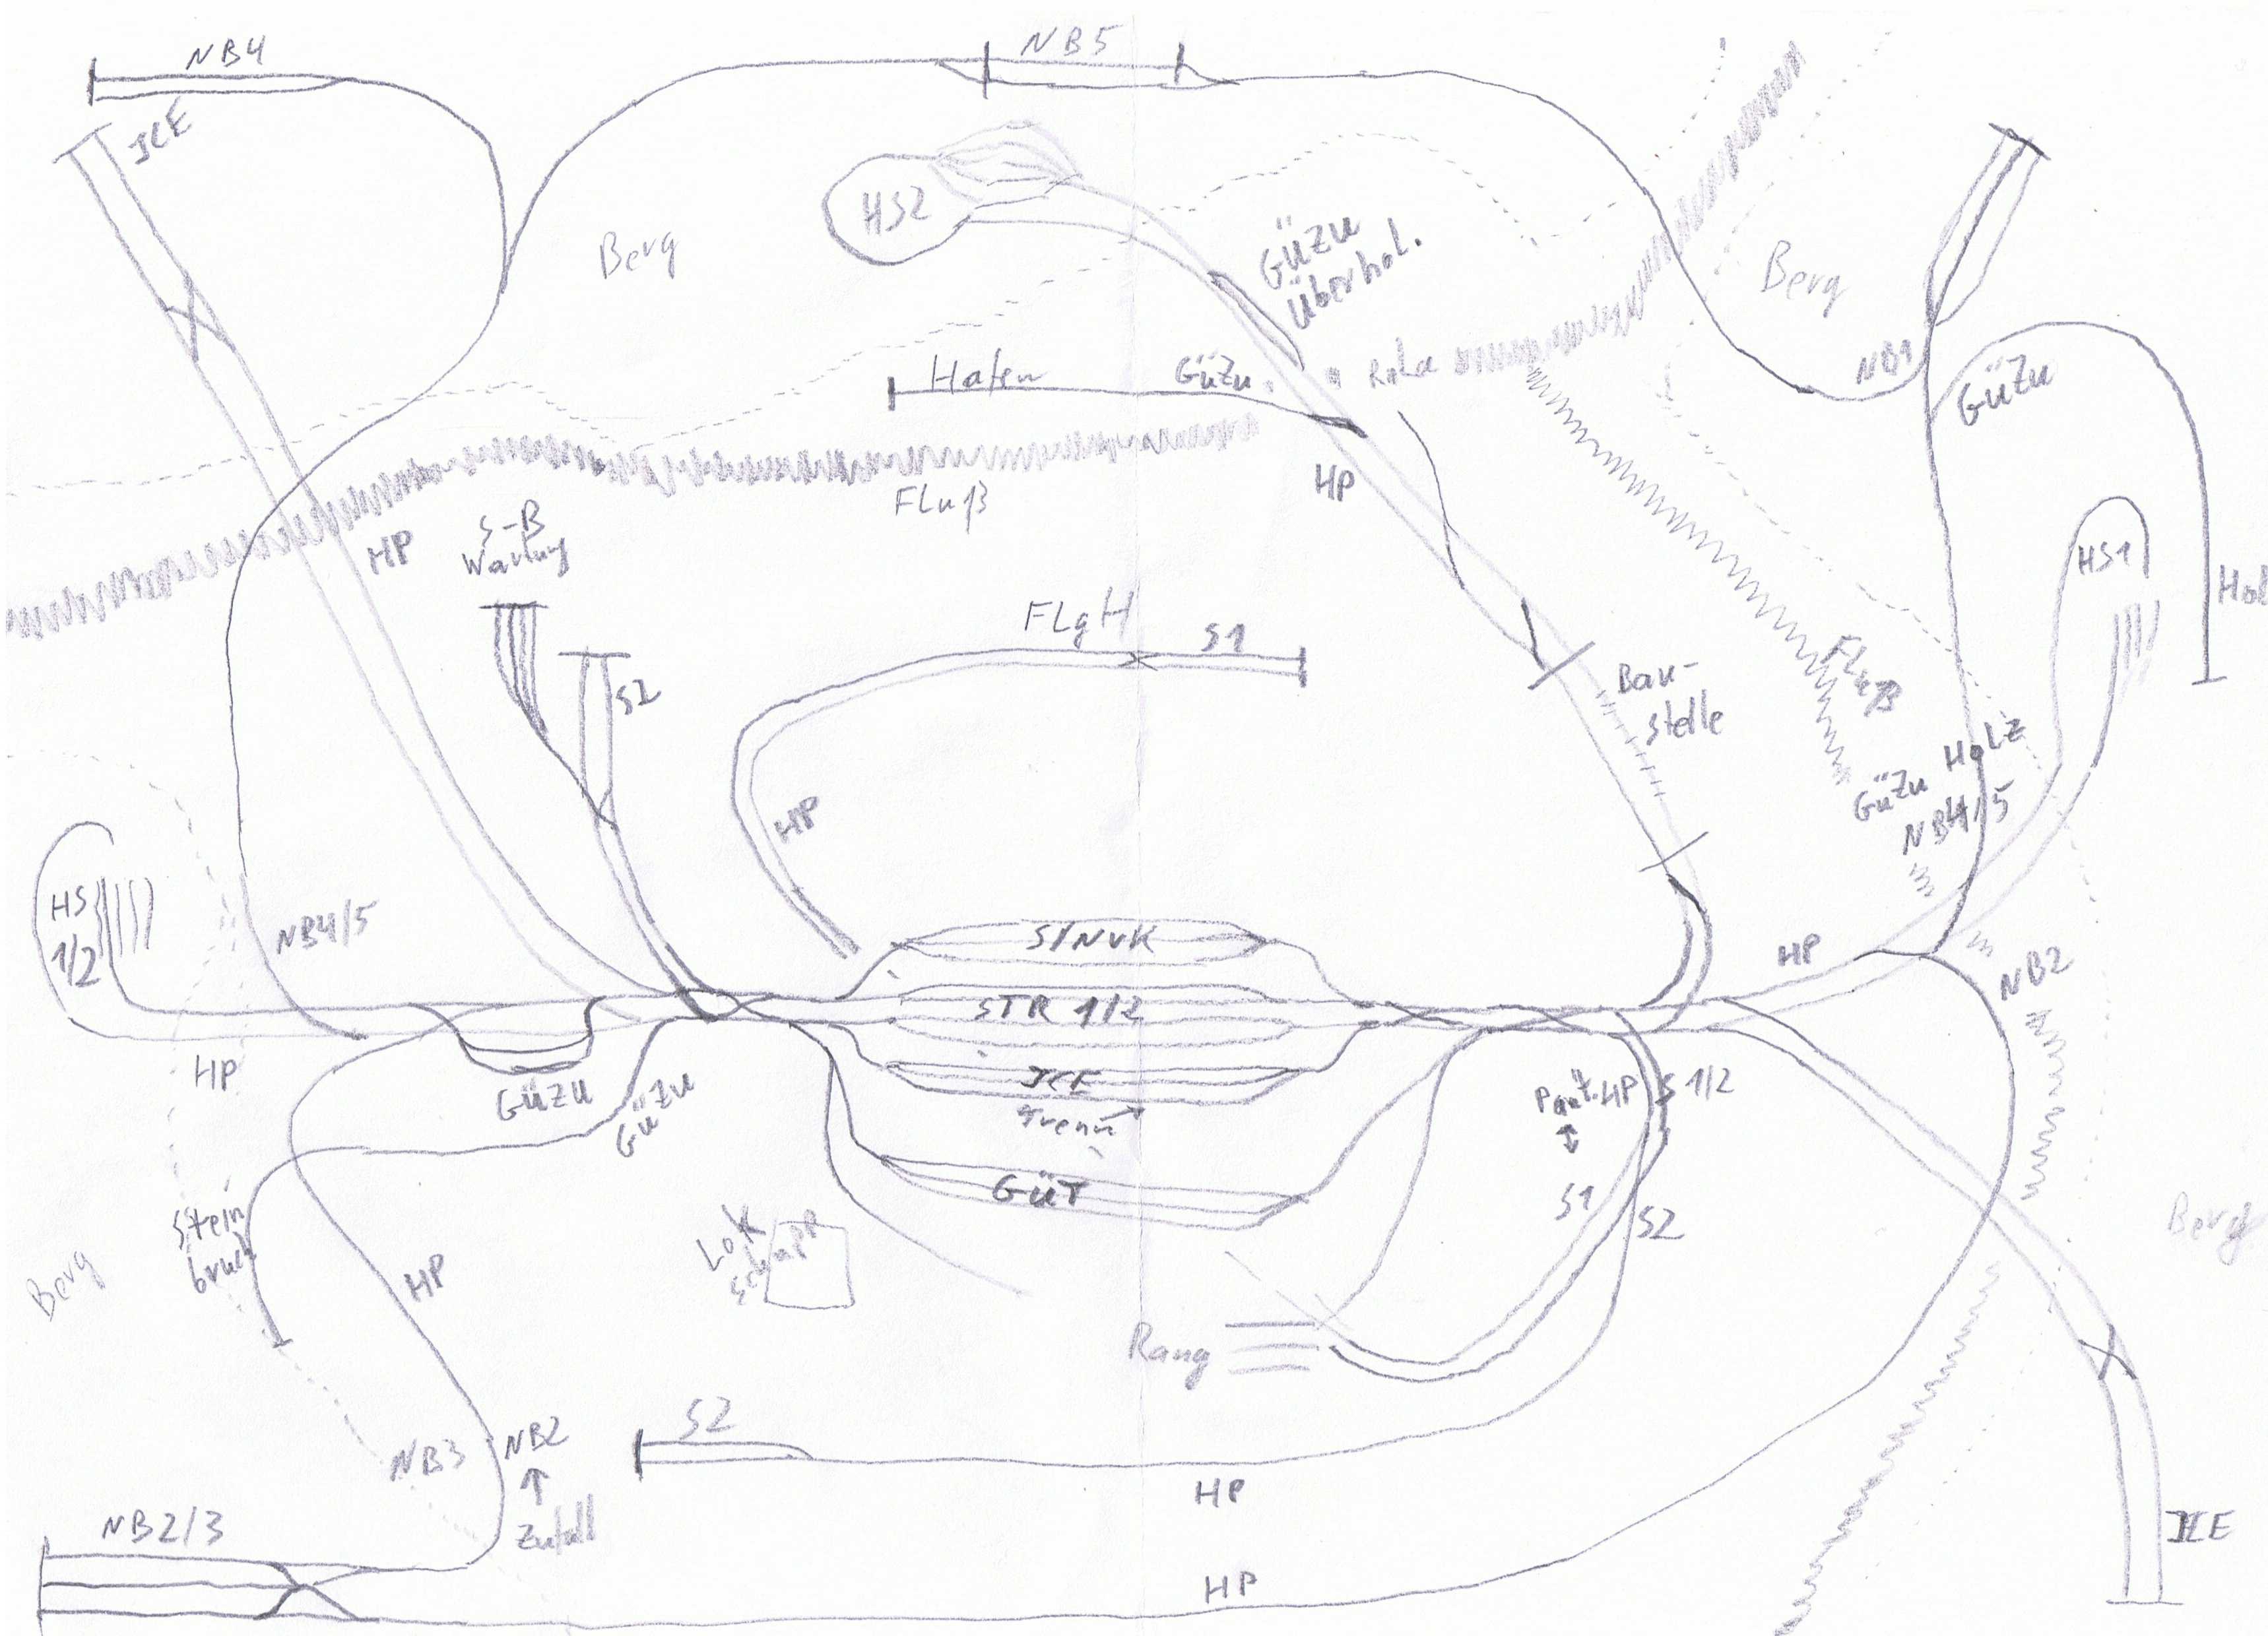 NB4
NB5
ICE
HS2
Berg
GüZu
überhol.
Berg
Hafen
GüZu
NB1
GüZu
HP
Fluß
S-B
Wartung
HP
HS1
FLgH
S1
S2
Bau-
stelle
Fluß
Holz
GüZu
NB4/5
HP
HS
1/2
NB4/5
S/NVK
STR 1/2
HP
NB2
HP
GüZu
GüZu
ICE
Trenn
HP S1/2
GÜT
S1
S2
Stein
bruch
Lok
Schupp
Berg
HP
Berg
Rang
S2
NB3
NB2
HP
Zufall
NB2/3
HP
ICE